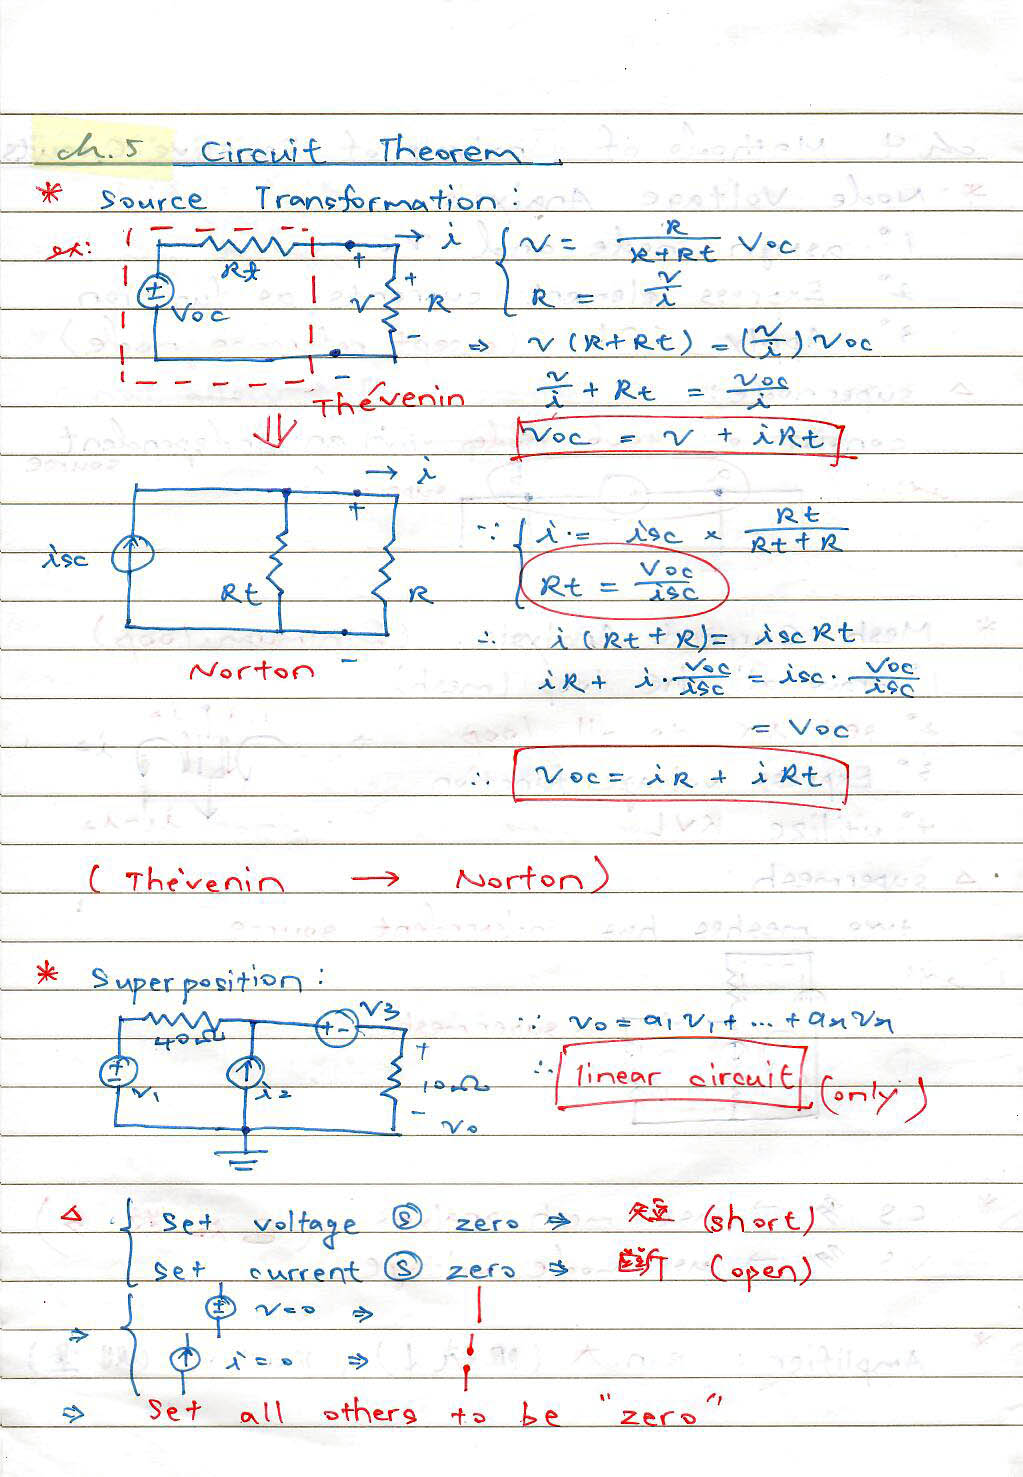 ch.5 Circuit Theorem.
* Source Transformation:
ex:
Rt
Voc
+
-
→ i
+
v
-
R
Thévenin
{ v = R/(R+Rt) Voc
R = v/i
⇒ v (R+Rt) = (v/i) Voc
v/i + Rt = Voc/i
Voc = v + iRt
⇓
→ i
isc
Rt
+
-
R
Norton
∵ { i = isc × Rt/(Rt+R)
Rt = Voc/isc
∴ i (Rt+R) = isc Rt
iR + i·Voc/isc = isc·Voc/isc
= Voc
∴ Voc = iR + iRt
(Thévenin → Norton)
* Superposition:
40Ω
+ -
V3
±
V1
i2
+
10Ω
-
Vo
∵ Vo = a1V1 + ... + anVn
∴ linear circuit (only)
△ { Set voltage Ⓢ zero ⇒ 短 (short)
Set current Ⓢ zero ⇒ 断 (open)
⇒ { ± v=0 ⇒
↑ i=0 ⇒
⇒ Set all others to be "zero"